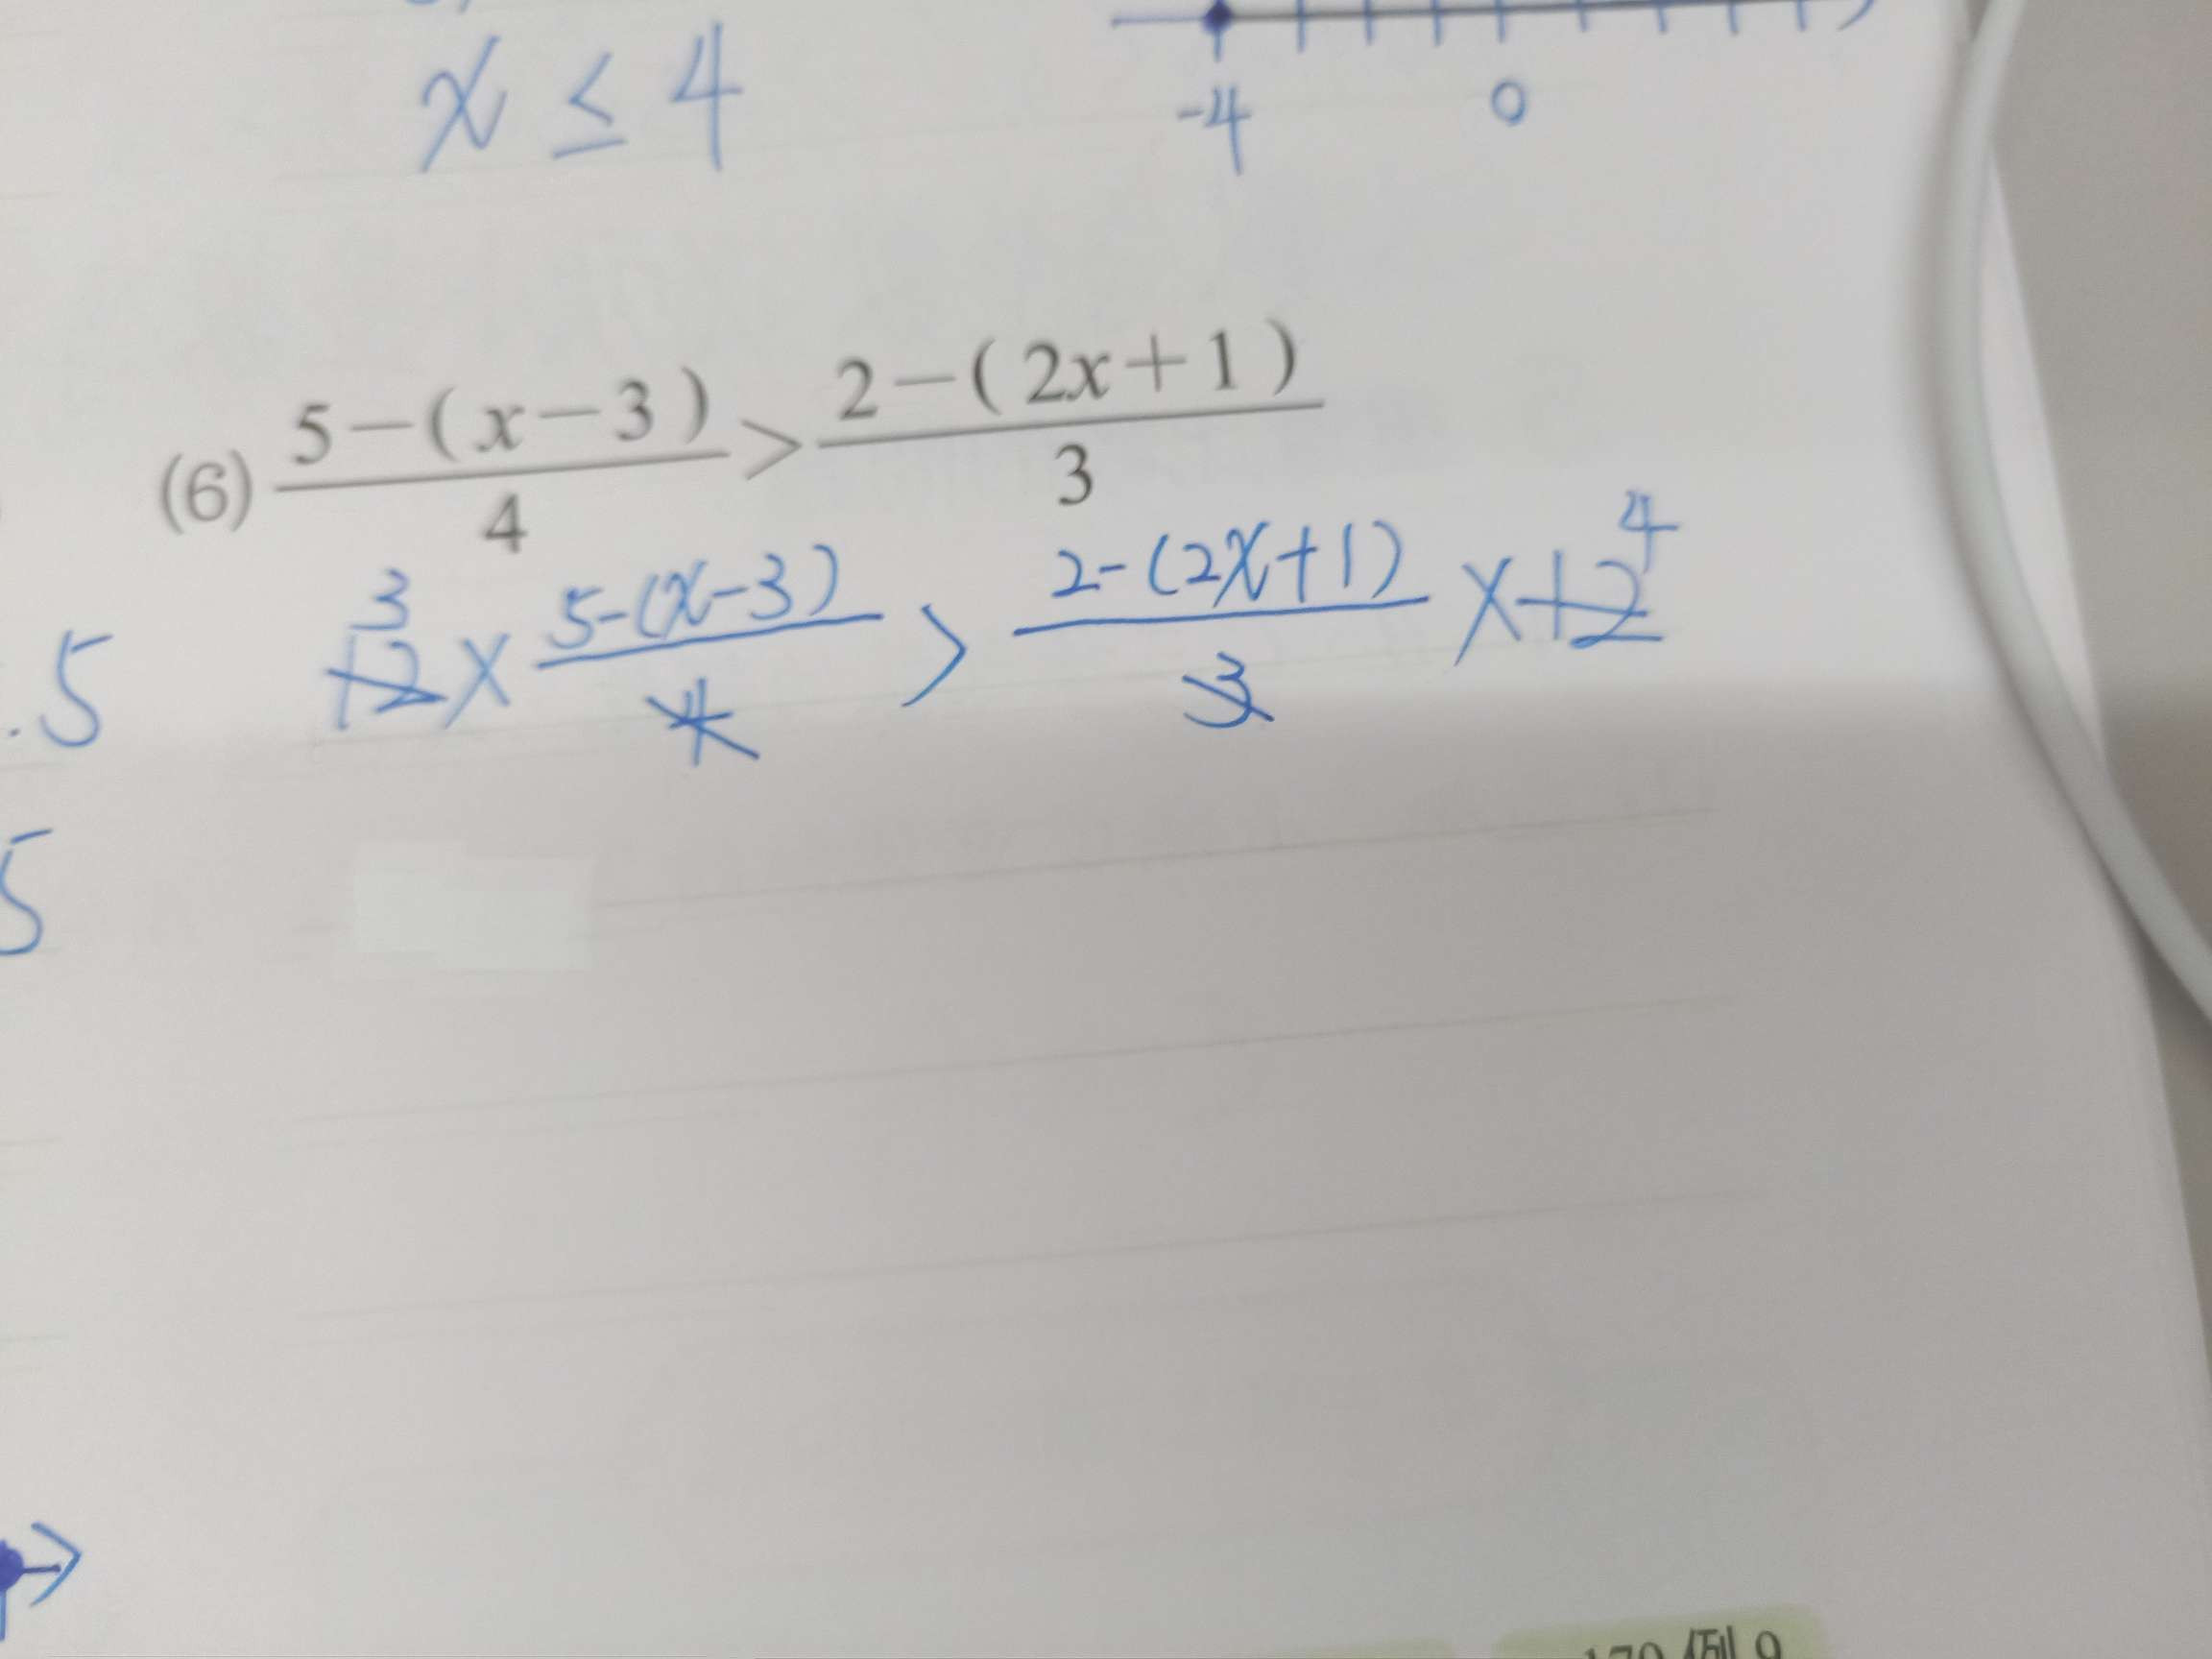 x ≤ 4
-4 0
(6) \frac{5-(x-3)}{4} > \frac{2-(2x+1)}{3}
3 4
12 × \frac{5-(x-3)}{4} > \frac{2-(2x+1)}{3} × 12
.5
5
例 9